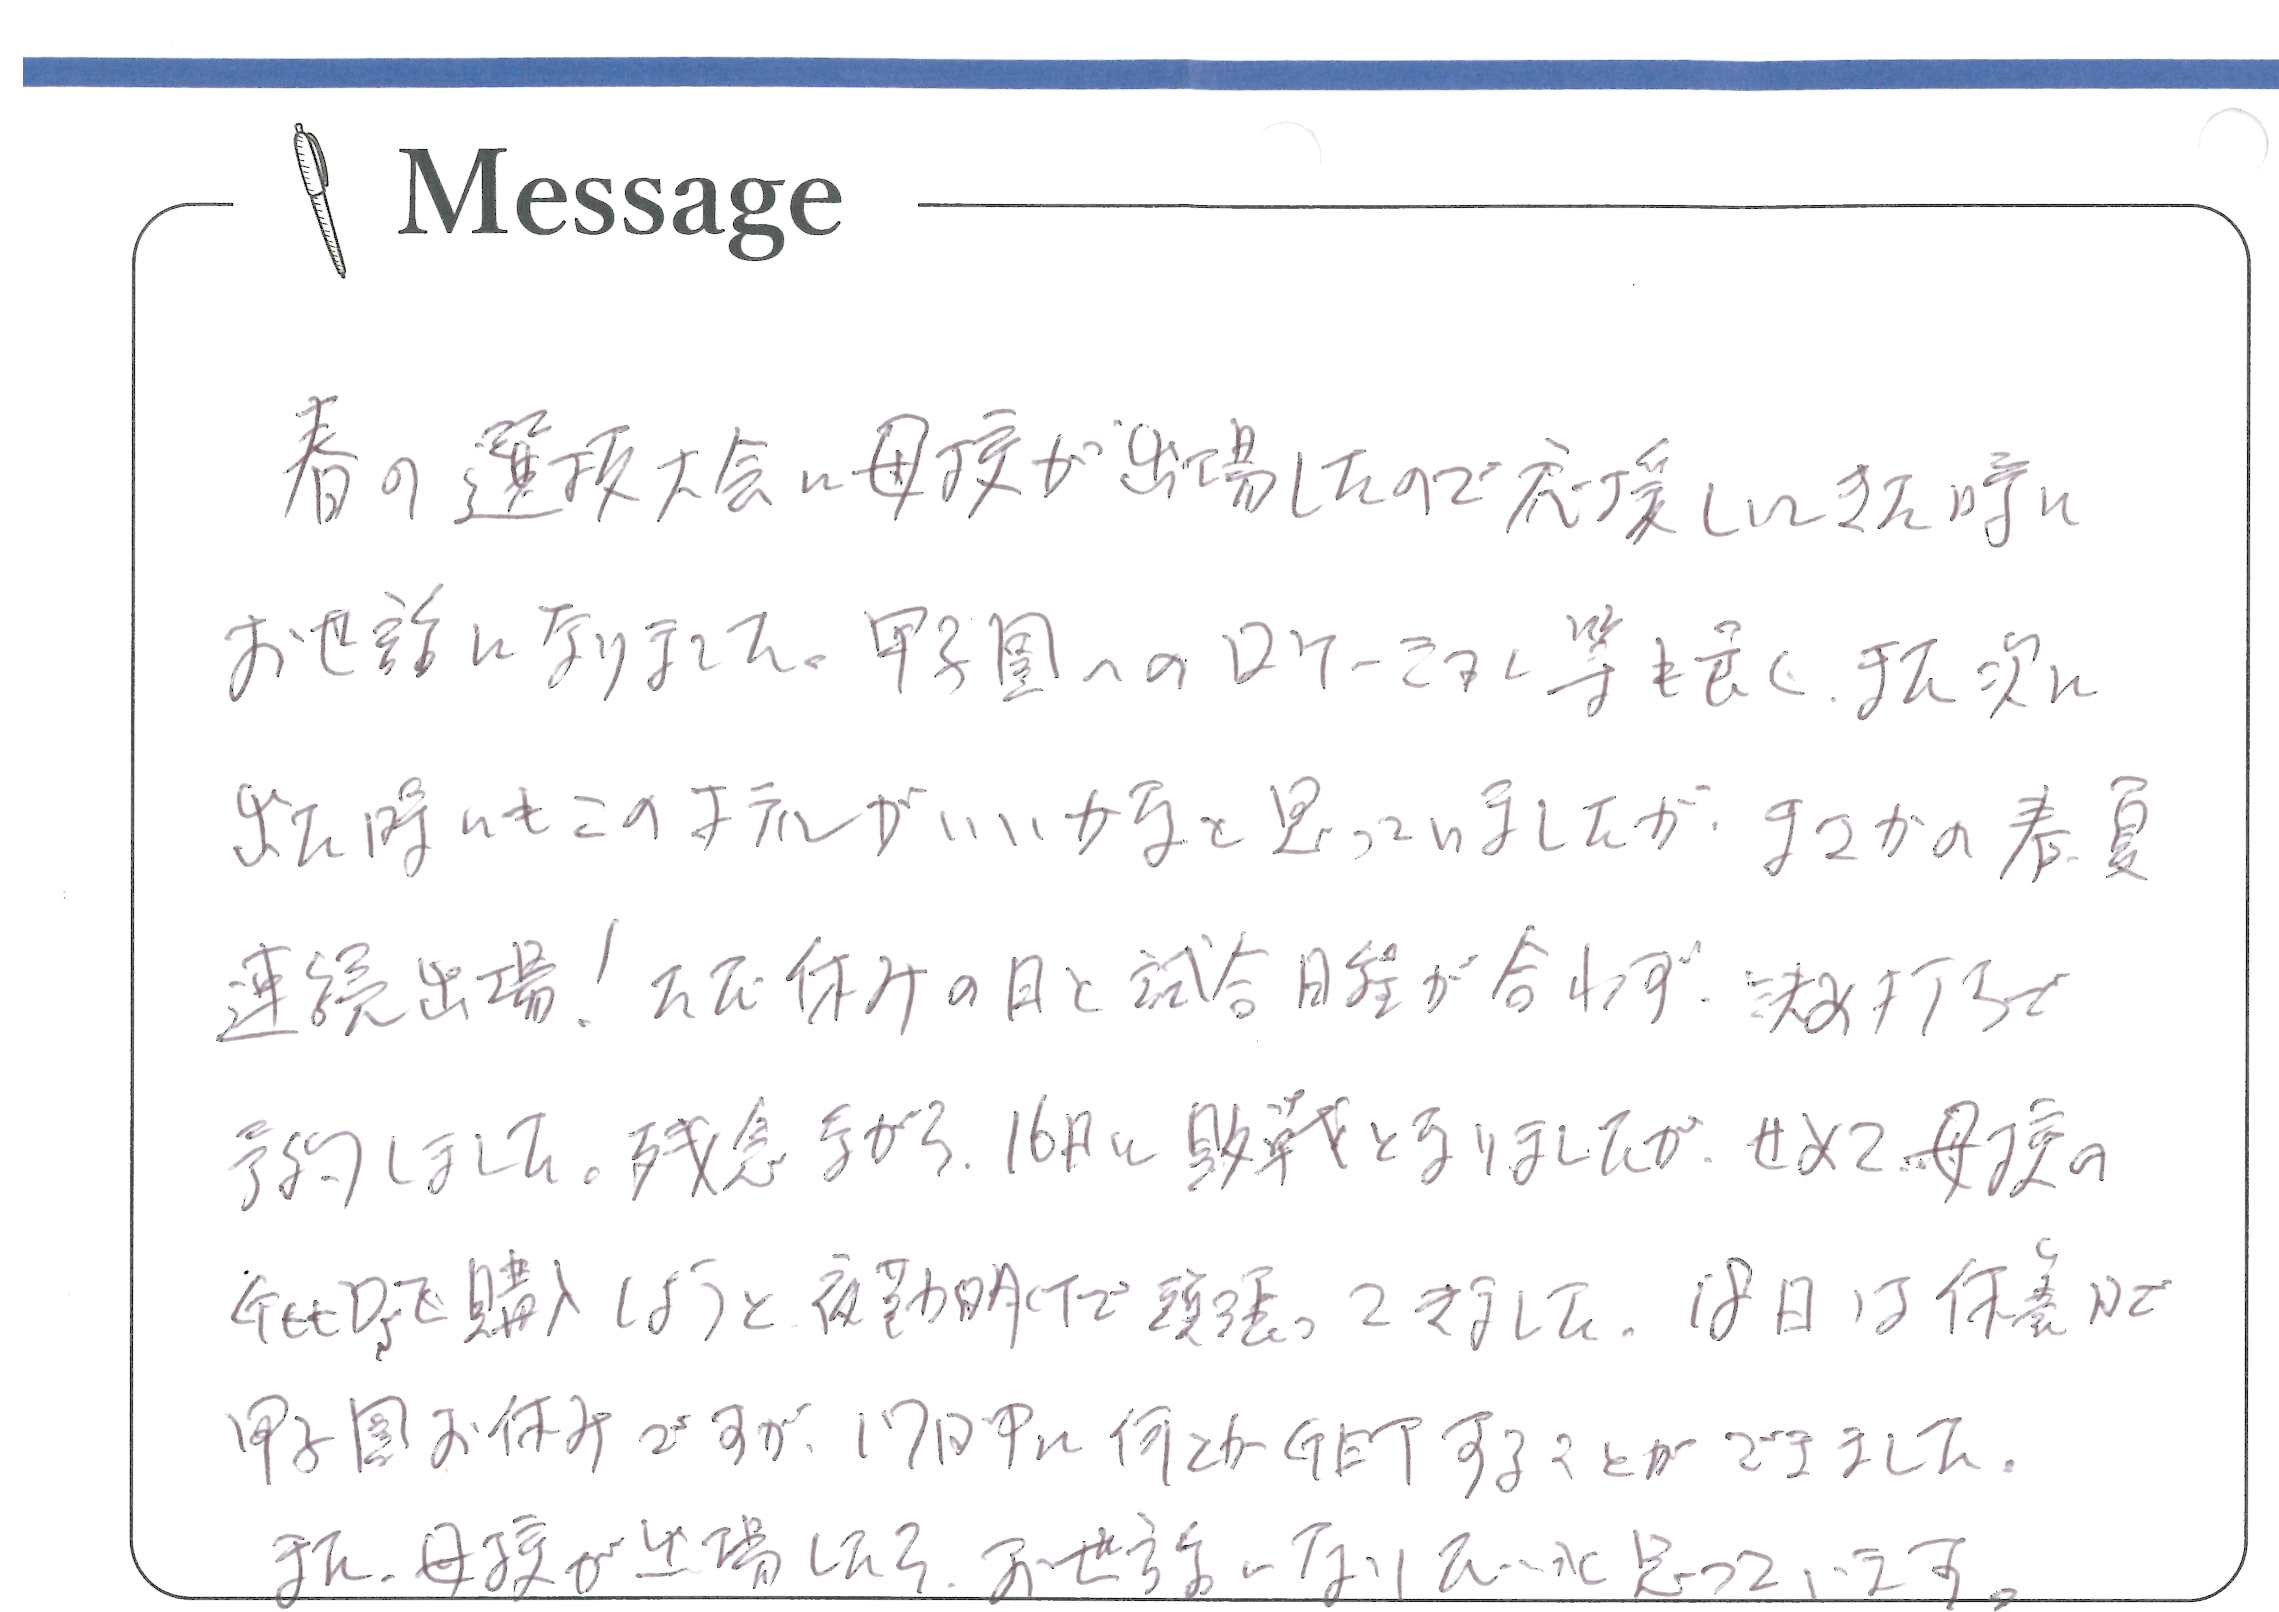 Message
春の選抜大会に母校が出場したので応援しにきた時に
お世話になりました。甲子園へのロケーション等も良く、また次に
出た時にもこのホテルがいいかなと思っていましたが、まさかの春夏
連続出場!ただ休みの日と試合日程が合わず、決め打ちで
予約しました。残念ながら、16日に敗戦となりましたが、せめて母校の
購入しようと夜勤明けで頑張ってきました。18日は休養日で
甲子園お休みですが、17日中に何とかGETすることができました。
また、母校が出場したら、お世話になりたいと思っています。